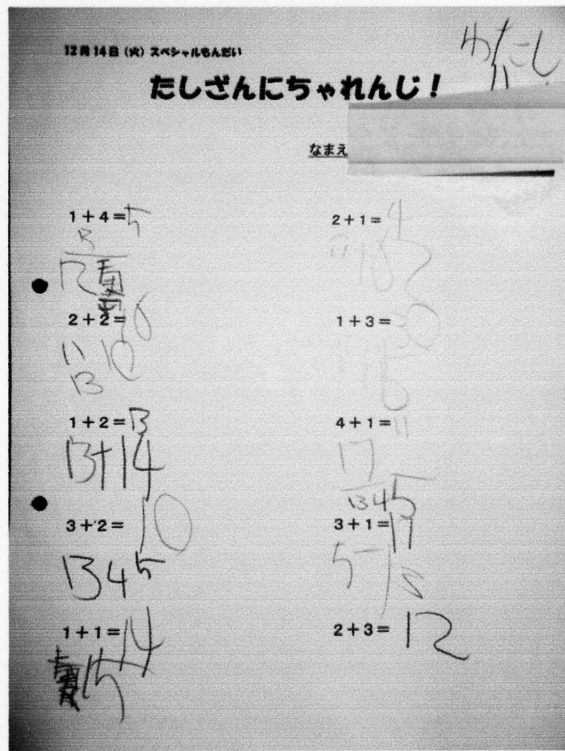 わたし
12月14日（火）スペシャルもんだい
たしざんにちゃれんじ！
なまえ
1+4=5
12
2+2=
11 10
13
1+2=13
13+14
3+2=10
1345
1+1=14
15
2+1=4
1+3=30
4+1=11
17
1345
3+1=17
5
2+3=12